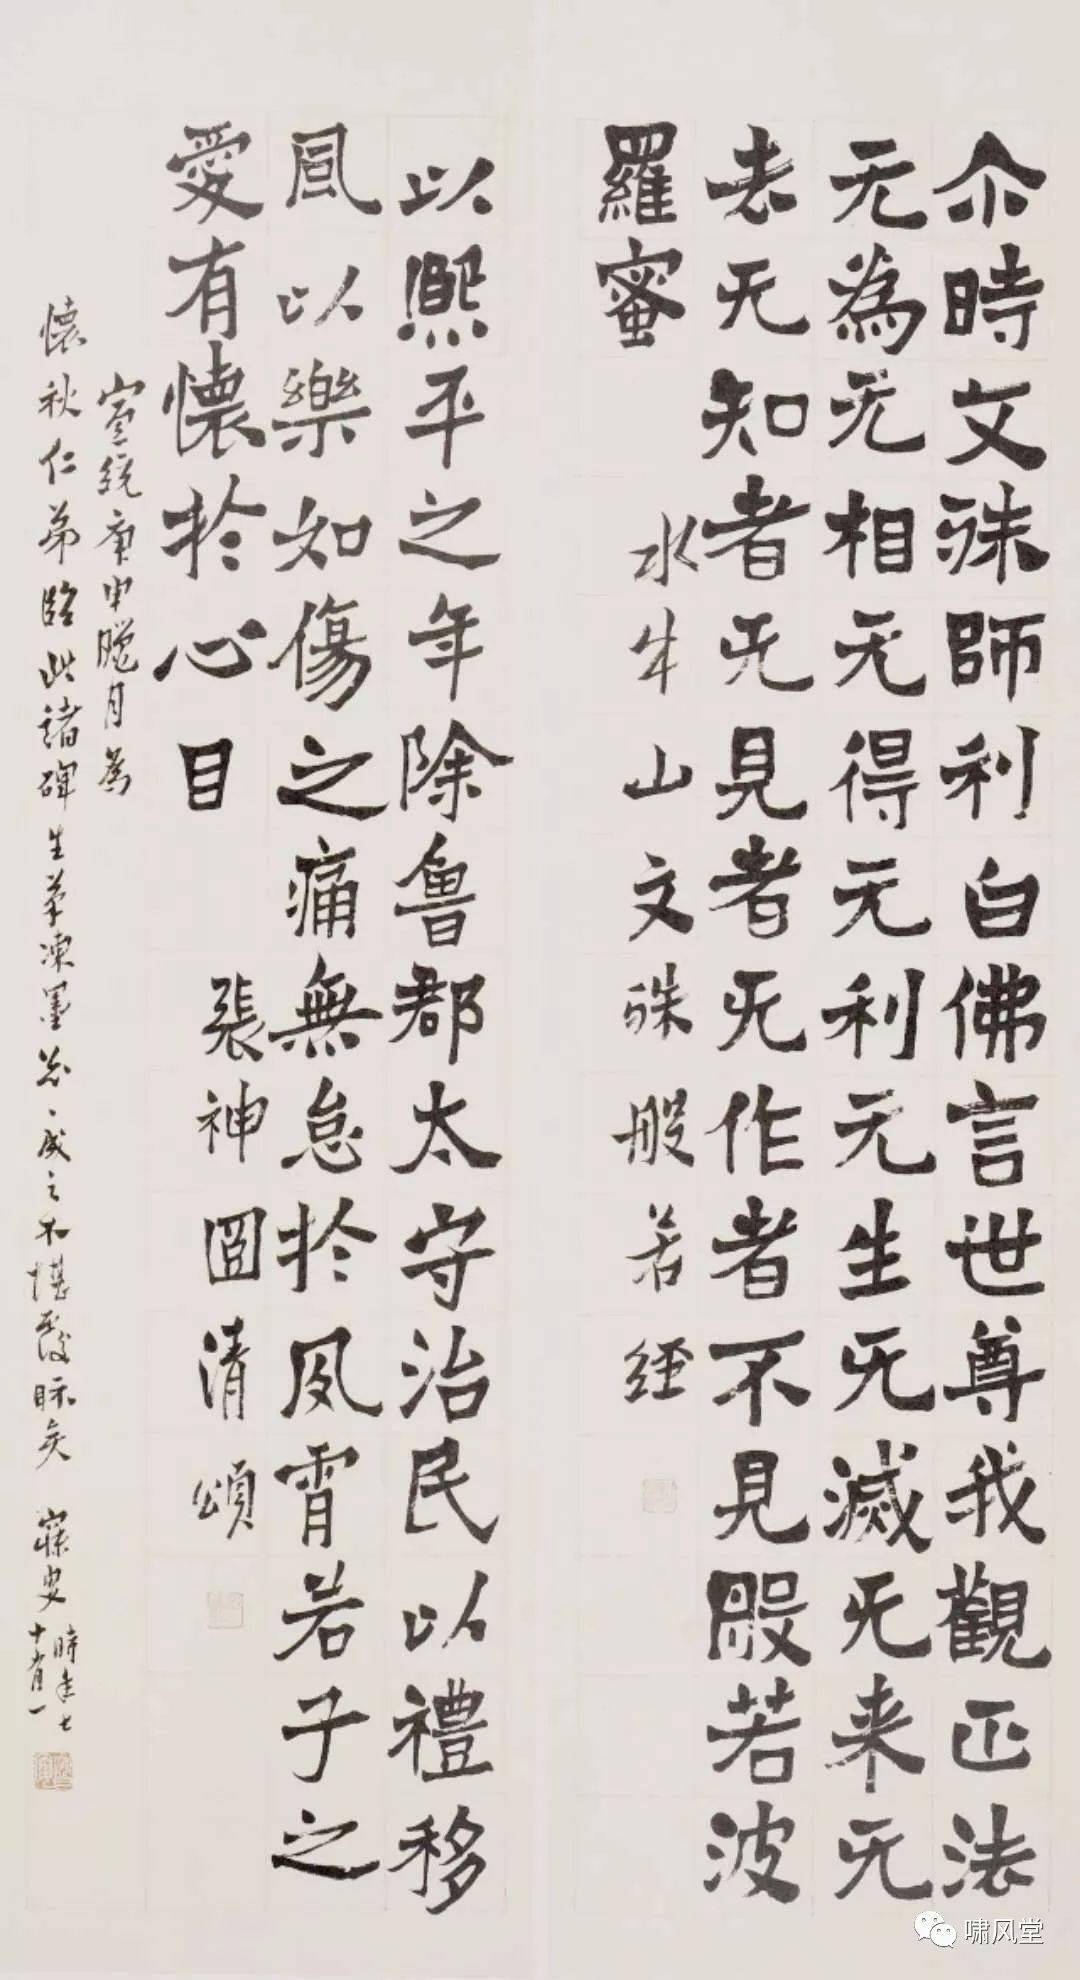 尒時文殊師利白佛言世尊我觀正法
无為无相无得无利无生无滅无来无
去无知者无見者无作者不見般若波
羅蜜
水牛山文殊般若經
以熙平之年除魯郡太守治民以禮移
風以樂如傷之痛無怠於夙宵若子之
愛有懷於心目
張神囶清頌
宣統庚申臘月為
懷秋仁弟臨此諸碑生筆凍墨忽忽成之不堪覆眎矣 寐叟
時年七
十有一
啸风堂